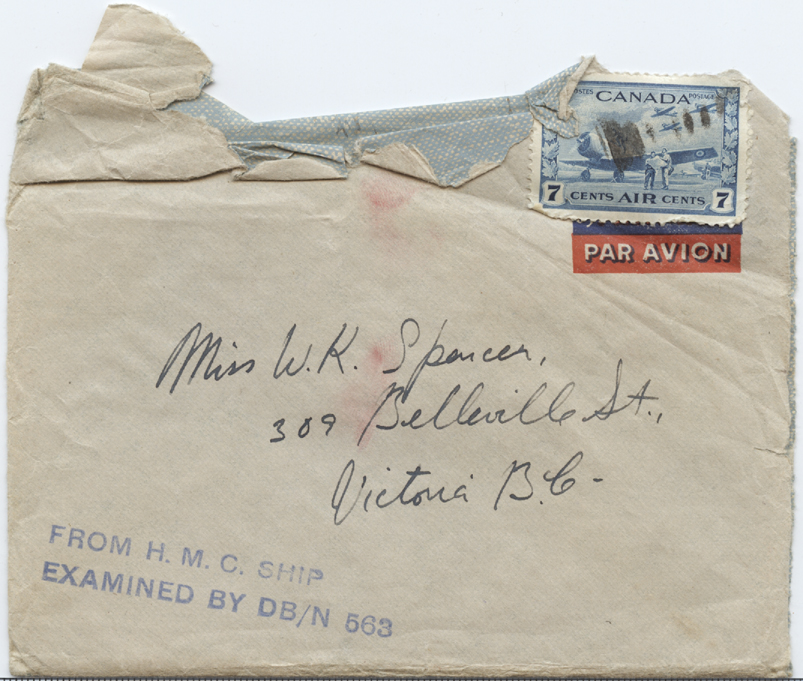 POSTES CANADA POSTAGE
7 CENTS AIR CENTS 7
PAR AVION
Miss W.K. Spencer,
309 Belleville St.,
Victoria B.C-
FROM H. M. C. SHIP
EXAMINED BY DB/N 563